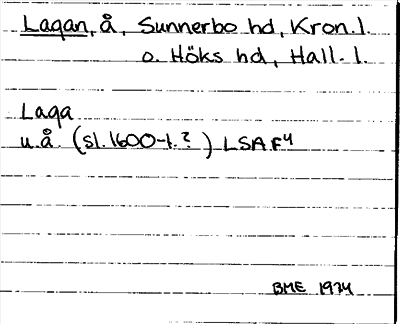 Lagan, å, Sunnerbo hd, Kron. l.
o. Höks hd, Hall. l.
Laga
u.å. (sl. 1600-t.?) LSA F4
BME 1974